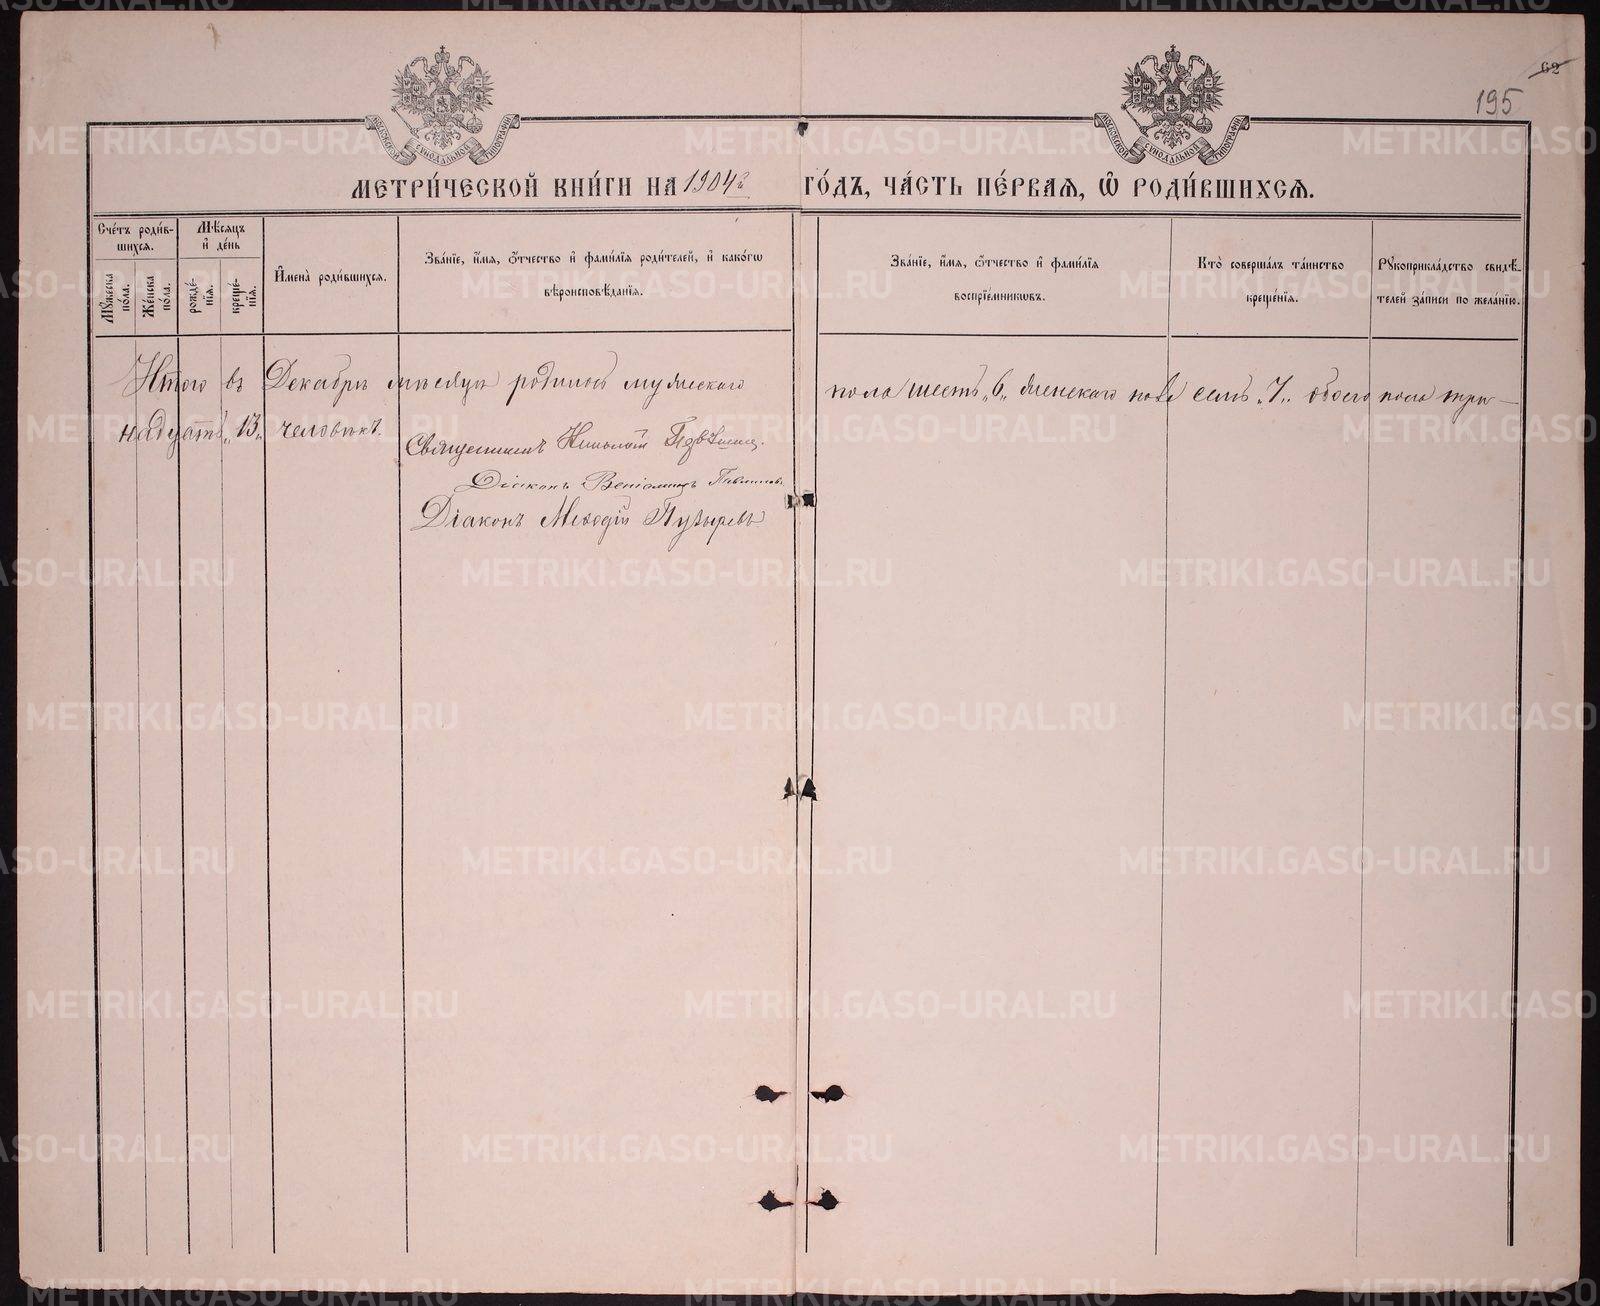 62
195
МОСКОВСКОЙ СѴНОДАЛЬНОЙ ТИПОГРАФІИ
МОСКОВСКОЙ СѴНОДАЛЬНОЙ ТИПОГРАФІИ
МЕТРИ́ЧЕСКОЙ КНИ́ГИ НА 1904й ГО́ДЪ, ЧА́СТЬ ПЕ́РВАѦ, Ѡ҆ РОДИ́ВШИХСѦ.
Сче́тъ роди́в-
шихсѧ.
Мꙋ́жеска по́ла.
Же́нска по́ла.
Мѣ́сѧцъ
и҆ де́нь
рожде́-
нїѧ.
креще́-
нїѧ.
И҆мена̀ роди́вшихсѧ.
Зва́нїе, и҆́мѧ, ѻ҆́тчество и҆ фами́лїѧ роди́телей, и҆ како́гѡ
вѣроисповѣ́данїѧ.
Зва́нїе, и҆́мѧ, ѻ҆́тчество и҆ фами́лїѧ
воспрїе́мникѡвъ.
Кто̀ соверша́лъ та́инство
креще́нїѧ.
Рꙋкоприкла́дство свидѣ́-
телей за́писи по жела́нїю.
Итого въ Декабрѣ мѣсяцѣ родилось мужескаго пола шесть „6„ женскаго пола семь „7„ обоего пола три-
надцать „13„ человѣкъ.
Священникъ Николай
Діаконъ Веніаминъ
Діаконъ Меѳодій Пузыревъ
METRIKI.GASO-URAL.RU